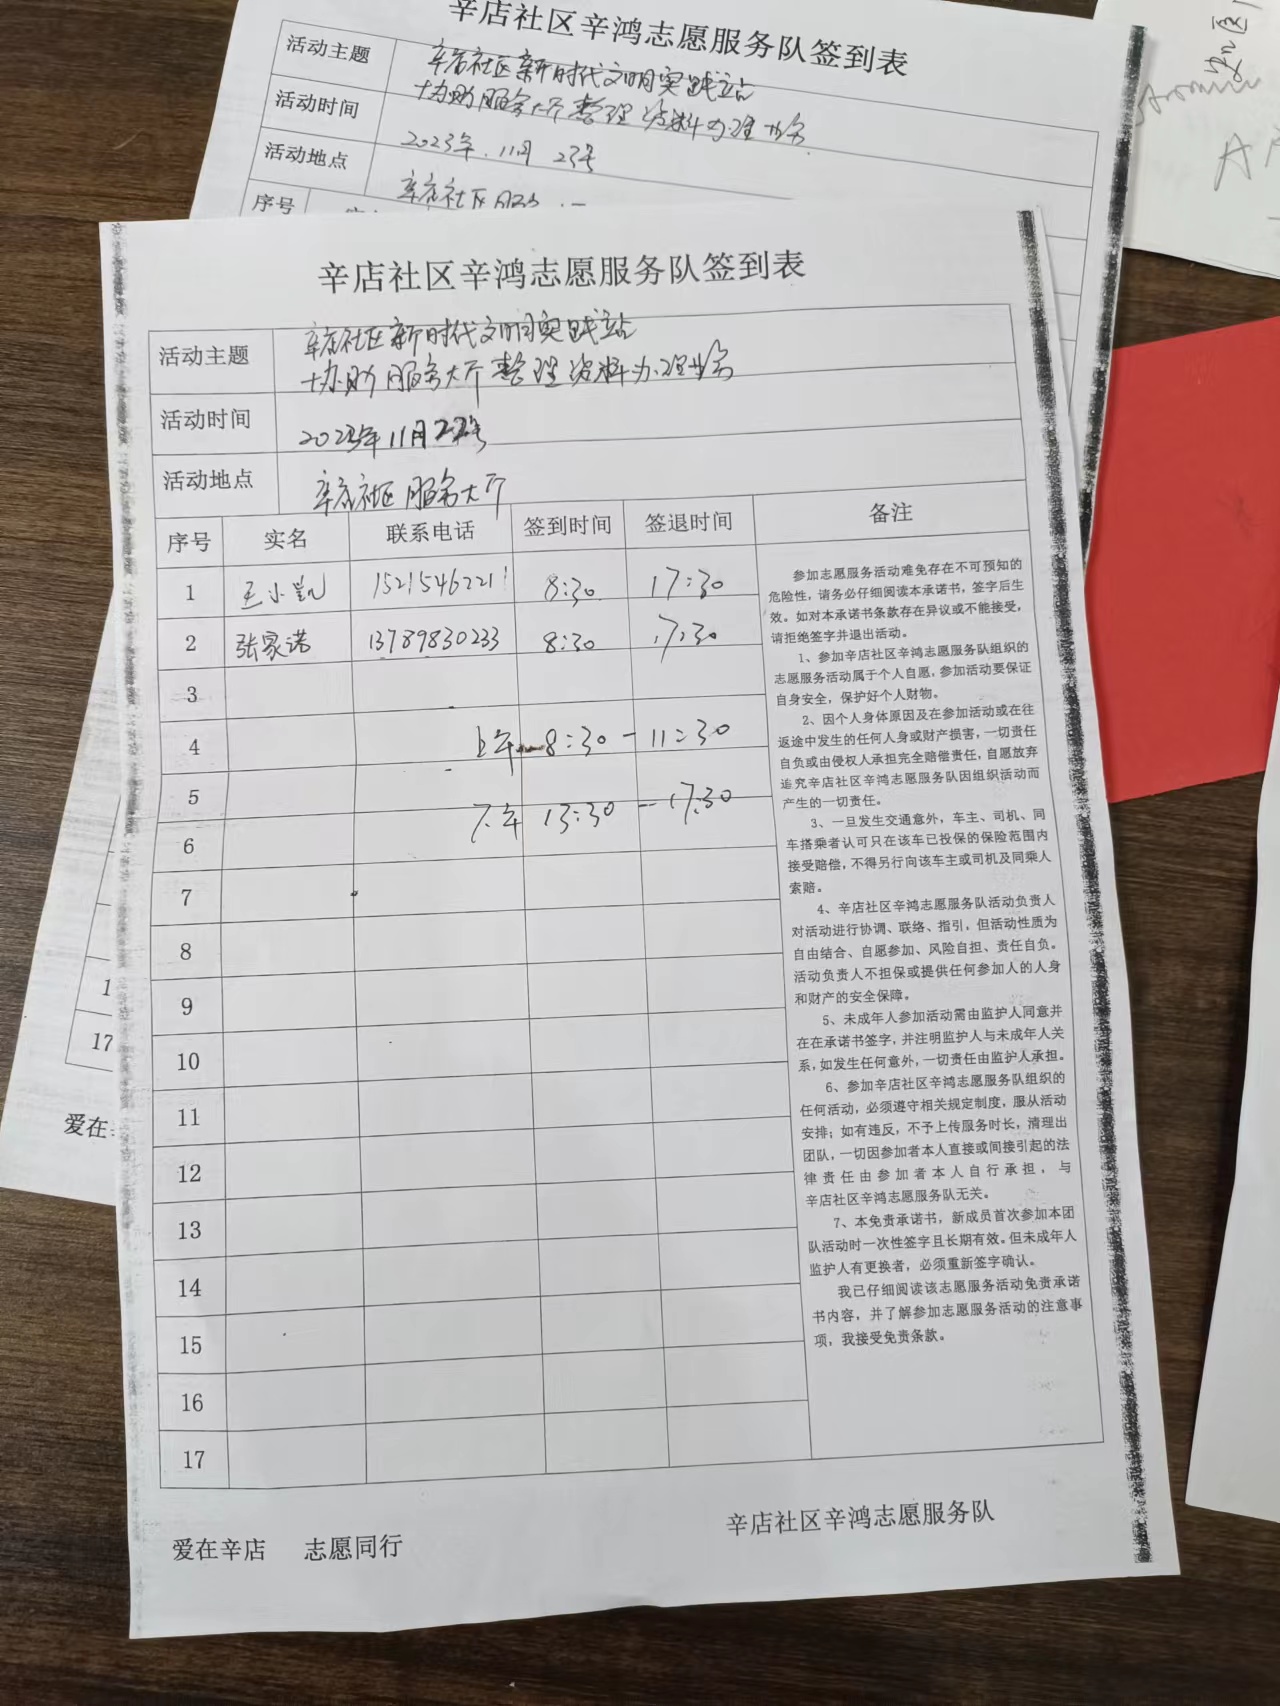 辛店社区辛鸿志愿服务队签到表
活动主题
辛店社区新时代文明实践站
协助服务大厅整理资料办理业务
活动时间
2023年.11月23号
活动地点
辛店社区服务
序号
辛店社区辛鸿志愿服务队签到表
活动主题
辛店社区新时代文明实践站
协助服务大厅整理资料办理业务
活动时间
2023年11月22号
活动地点
辛店社区服务大厅
序号 实名 联系电话 签到时间 签退时间 备注
1 王小凯 15215462211 8:30 17:30
2 张家诺 13789830233 8:30 17:30
3
4 上午 8:30-11:30
5
6 下午 13:30-17:30
7
8
9
10
11
12
13
14
15
16
17
参加志愿服务活动难免存在不可预知的
危险性，请务必仔细阅读本承诺书，签字后生
效。如对本承诺书条款存在异议或不能接受，
请拒绝签字并退出活动。
1、参加辛店社区辛鸿志愿服务队组织的
志愿服务活动属于个人自愿，参加活动要保证
自身安全，保护好个人财物。
2、因个人身体原因及在参加活动或在往
返途中发生的任何人身或财产损害，一切责任
自负或由侵权人承担完全赔偿责任，自愿放弃
追究辛店社区辛鸿志愿服务队因组织活动而
产生的一切责任。
3、一旦发生交通意外，车主、司机、同
车搭乘者认可只在该车已投保的保险范围内
接受赔偿，不得另行向该车主或司机及同乘人
索赔。
4、辛店社区辛鸿志愿服务队活动负责人
对活动进行协调、联络、指引，但活动性质为
自由结合、自愿参加、风险自担、责任自负。
活动负责人不担保或提供任何参加人的人身
和财产的安全保障。
5、未成年人参加活动需由监护人同意并
在在承诺书签字，并注明监护人与未成年人关
系，如发生任何意外，一切责任由监护人承担。
6、参加辛店社区辛鸿志愿服务队组织的
任何活动，必须遵守相关规定制度，服从活动
安排；如有违反，不予上传服务时长，清理出
团队，一切因参加者本人直接或间接引起的法
律责任由参加者本人自行承担，与
辛店社区辛鸿志愿服务队无关。
7、本免责承诺书，新成员首次参加本团
队活动时一次性签字且长期有效。但未成年人
监护人有更换者，必须重新签字确认。
我已仔细阅读该志愿服务活动免责承诺
书内容，并了解参加志愿服务活动的注意事
项，我接受免责条款。
爱在辛店 志愿同行
辛店社区辛鸿志愿服务队
17
爱在